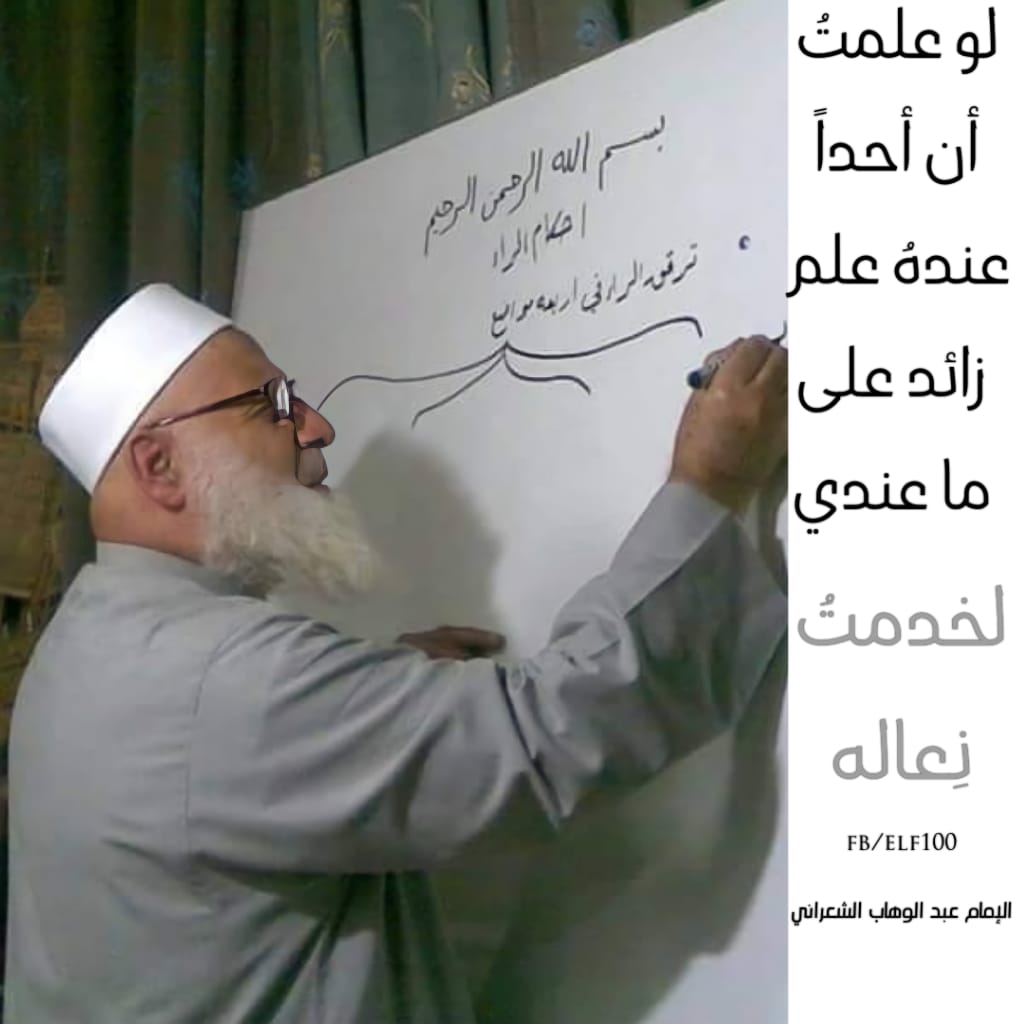 بسم الله الرحمن الرحيم
احكام الراء
ترقق الراء في اربعه مواضع
لو علمتُ
أن أحداً
عندهُ علم
زائد على
ما عندي
لخدمتُ
نِعاله
FB/ELF100
الإمام عبد الوهاب الشعراني